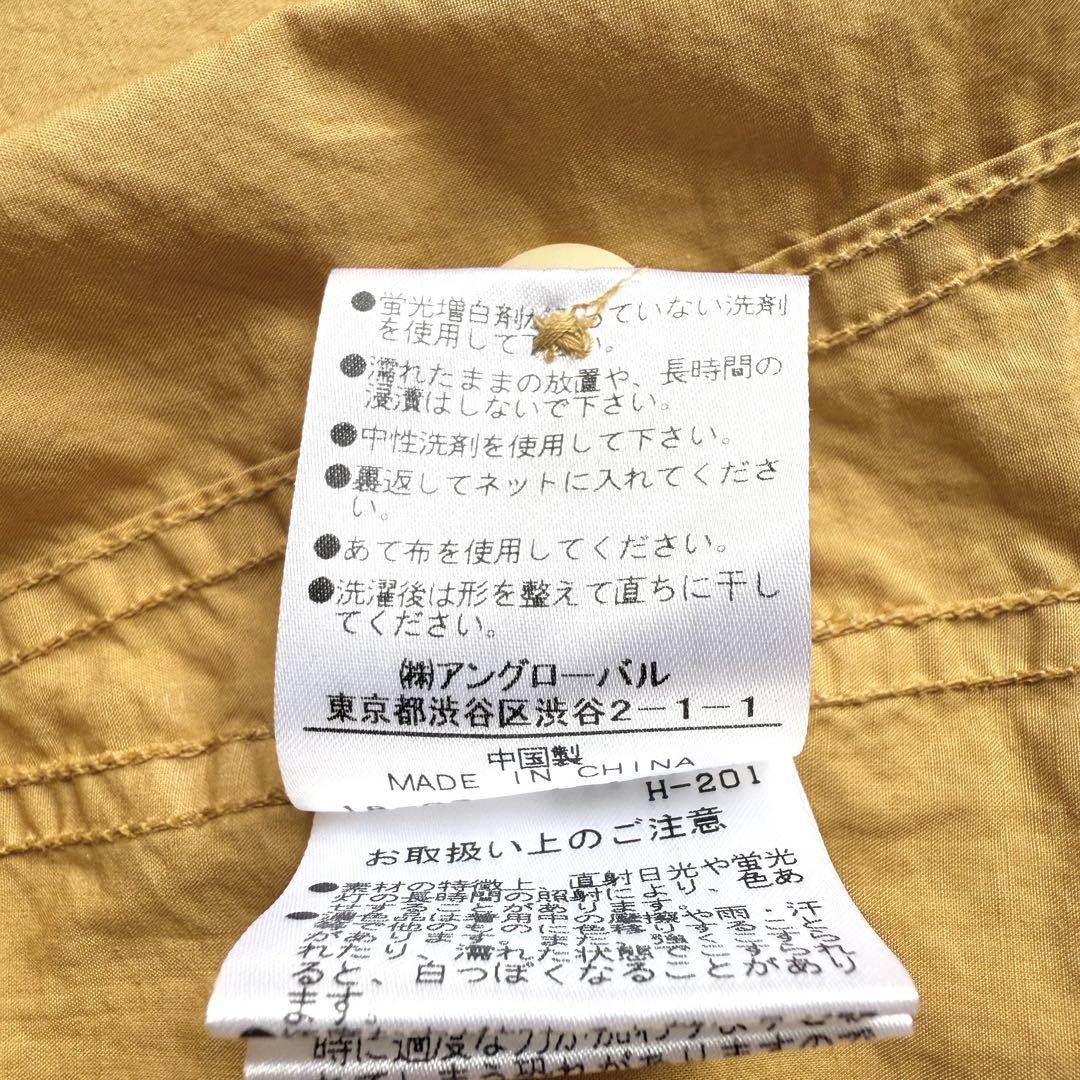 ●蛍光増白剤が っていない洗剤
を使用して下さい。
●濡れたままの放置や、長時間の
浸漬はしないで下さい。
●中性洗剤を使用して下さい。
●裏返してネットに入れてくださ
い。
●あて布を使用してください。
●洗濯後は形を整えて直ちに干し
てください。
㈱アングローバル
東京都渋谷区渋谷2-1-1
中国製
MADE IN CHINA
H-201
お取扱い上のご注意
●素材の特徴上、直射日光や蛍光
灯の長時間の照射により、色あ
せすることがあります。
●濃色品は着用中の摩擦や雨・汗
等で他のものに色移りすること
があります。また、強くこすら
れたり、濡れた状態でこすられ
ると、白っぽくなることがあり
ます。
時に過度な力が加わりますと